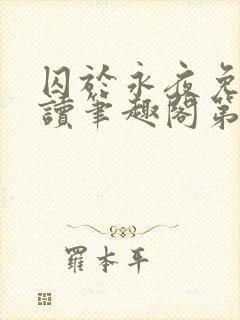 囚於永夜免
讀筆趣閣第
羅本平